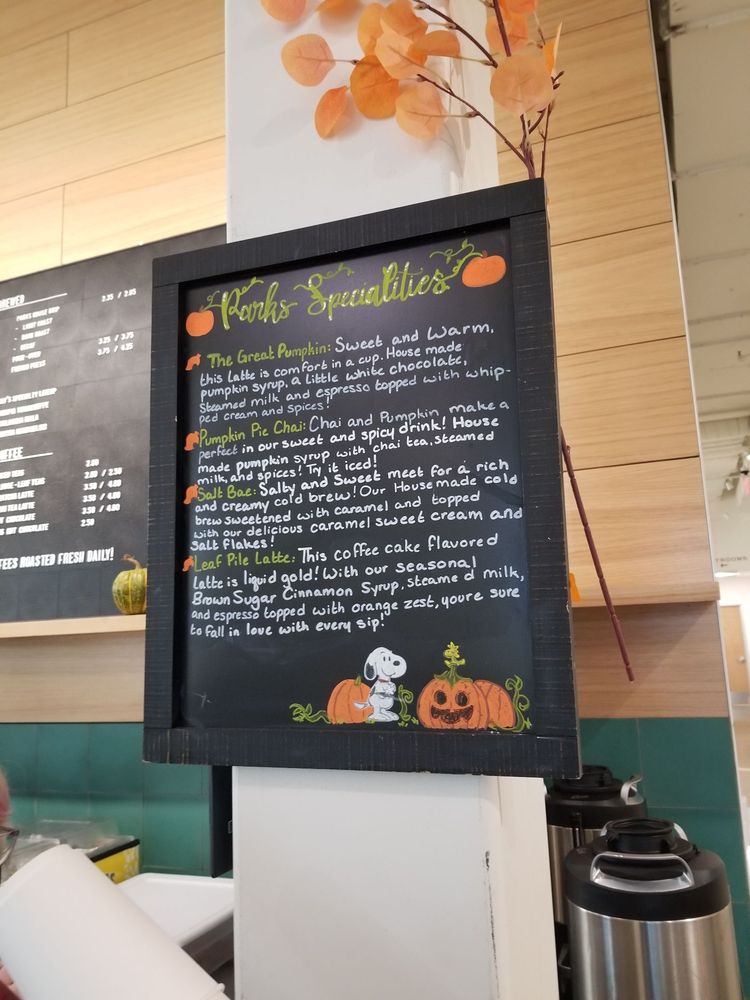 Parks Specialities
The Great Pumpkin: Sweet and Warm,
this Latte is comfort in a cup. House made
pumpkin syrup, a little white chocolate,
Steamed milk and espresso topped with whip-
ped cream and spices!
Pumpkin Pie Chai: Chai and Pumpkin make a
perfect in our sweet and spicy drink! House
made pumpkin syrup with chai tea, steamed
milk, and spices! Try it iced!
Salt Bae: Salty and Sweet meet for a rich
and creamy cold brew! Our House made cold
brew sweetened with caramel and topped
with our delicious caramel sweet cream and
Salt flakes!
Leaf Pile Latte: This coffee cake flavored
Latte is liquid gold! With our seasonal
Brown Sugar Cinnamon Syrup, steamed milk,
and espresso topped with orange zest, youre sure
to fall in love with every sip!
BREWED
PARKS HOUSE DRIP 2.35 / 2.85
- LIGHT ROAST
- DARK ROAST
3.25 / 3.75
POUR-OVER 3.75 / 4.25
FRENCH PRESS
2.00
2.00 / 2.50
3.50 / 4.00
3.50 / 4.00
3.50 / 4.00
HOT CHOCOLATE 2.50
FEES ROASTED FRESH DAILY!